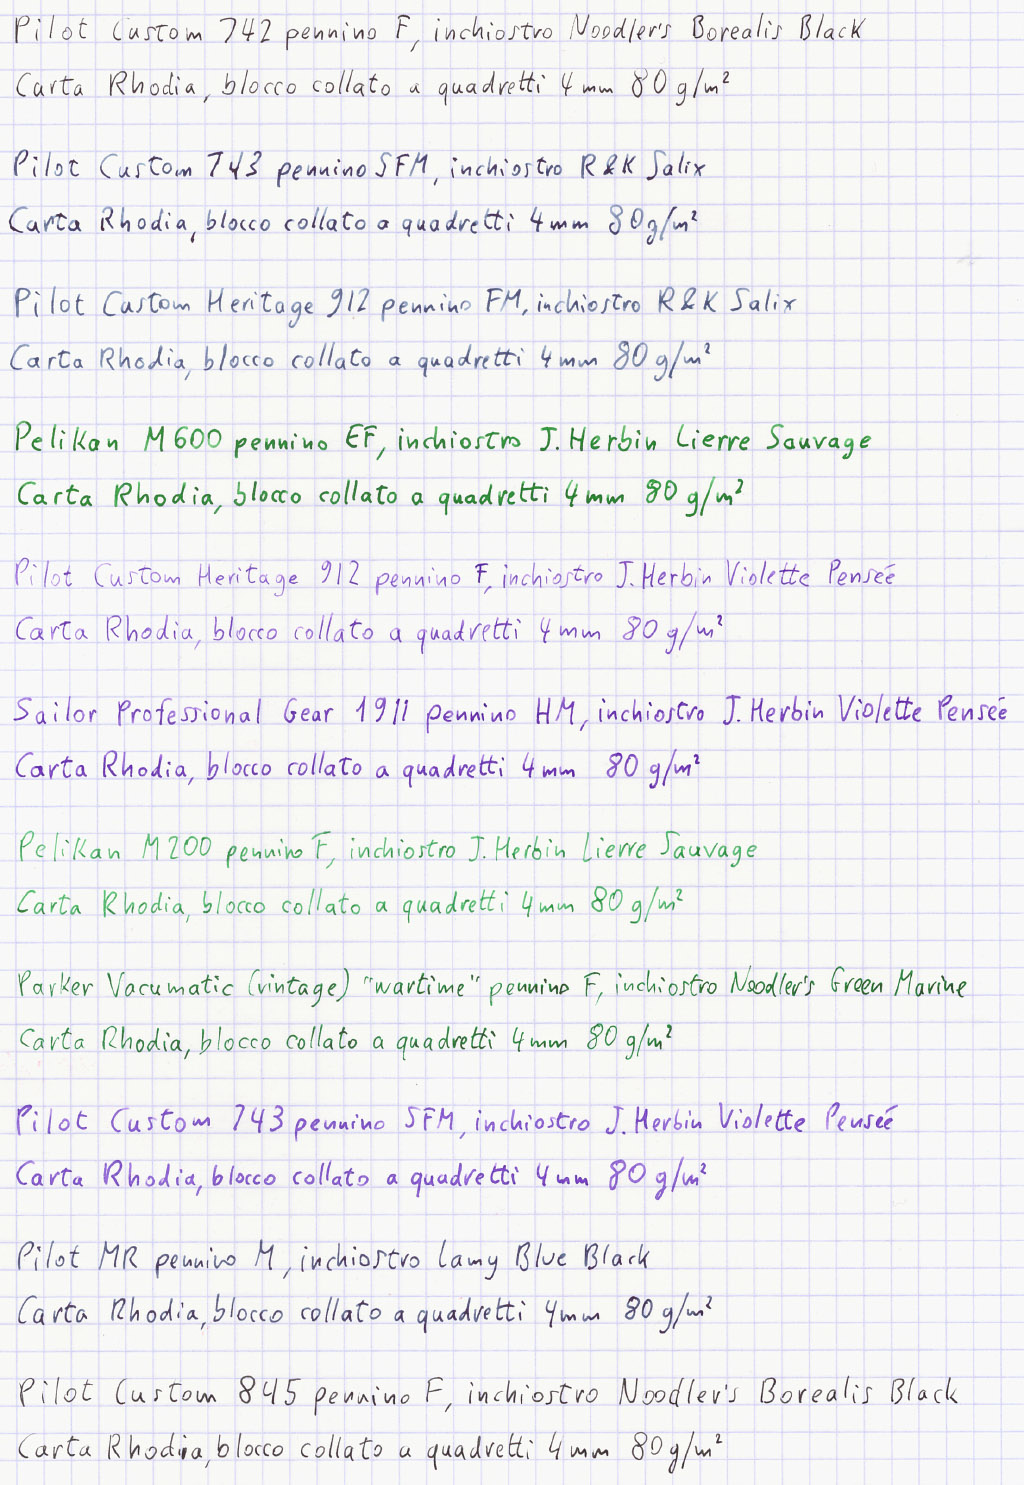 Pilot Custom 742 pennino F, inchiostro Noodler's Borealis Black
Carta Rhodia, blocco collato a quadretti 4mm 80 g/m²
Pilot Custom 743 pennino SFM, inchiostro R&K Salix
Carta Rhodia, blocco collato a quadretti 4mm 80g/m²
Pilot Custom Heritage 912 pennino FM, inchiostro R&K Salix
Carta Rhodia, blocco collato a quadretti 4mm 80 g/m²
Pelikan M600 pennino EF, inchiostro J. Herbin Lierre Sauvage
Carta Rhodia, blocco collato a quadretti 4mm 80 g/m²
Pilot Custom Heritage 912 pennino F, inchiostro J. Herbin Violette Penseé
Carta Rhodia, blocco collato a quadretti 4mm 80 g/m²
Sailor Professional Gear 1911 pennino HM, inchiostro J. Herbin Violette Penseé
Carta Rhodia, blocco collato a quadretti 4mm 80 g/m²
Pelikan M200 pennino F, inchiostro J. Herbin Lierre Sauvage
Carta Rhodia, blocco collato a quadretti 4mm 80 g/m²
Parker Vacumatic (vintage) "wartime" pennino F, inchiostro Noodler's Green Marine
Carta Rhodia, blocco collato a quadretti 4mm 80 g/m²
Pilot Custom 743 pennino SFM, inchiostro J. Herbin Violette Penseé
Carta Rhodia, blocco collato a quadretti 4mm 80 g/m²
Pilot MR pennino M, inchiostro Lamy Blue Black
Carta Rhodia, blocco collato a quadretti 4mm 80 g/m²
Pilot Custom 845 pennino F, inchiostro Noodler's Borealis Black
Carta Rhodia, blocco collato a quadretti 4mm 80g/m²